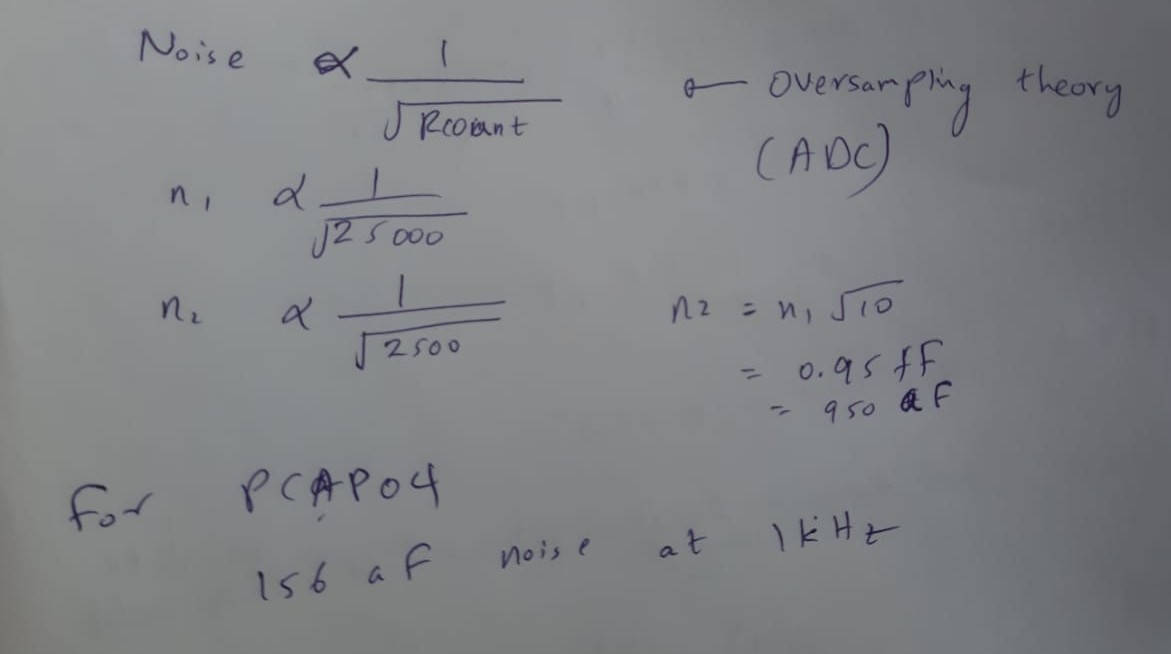 Noise ∝ 1 / √Rcount ← Oversampling theory
(ADC)
n₁ ∝ 1 / √25000
n₂ ∝ 1 / √2500 n2 = n₁ √10
= 0.95 fF
= 950 aF
For PCAP04
156 aF noise at 1kHz